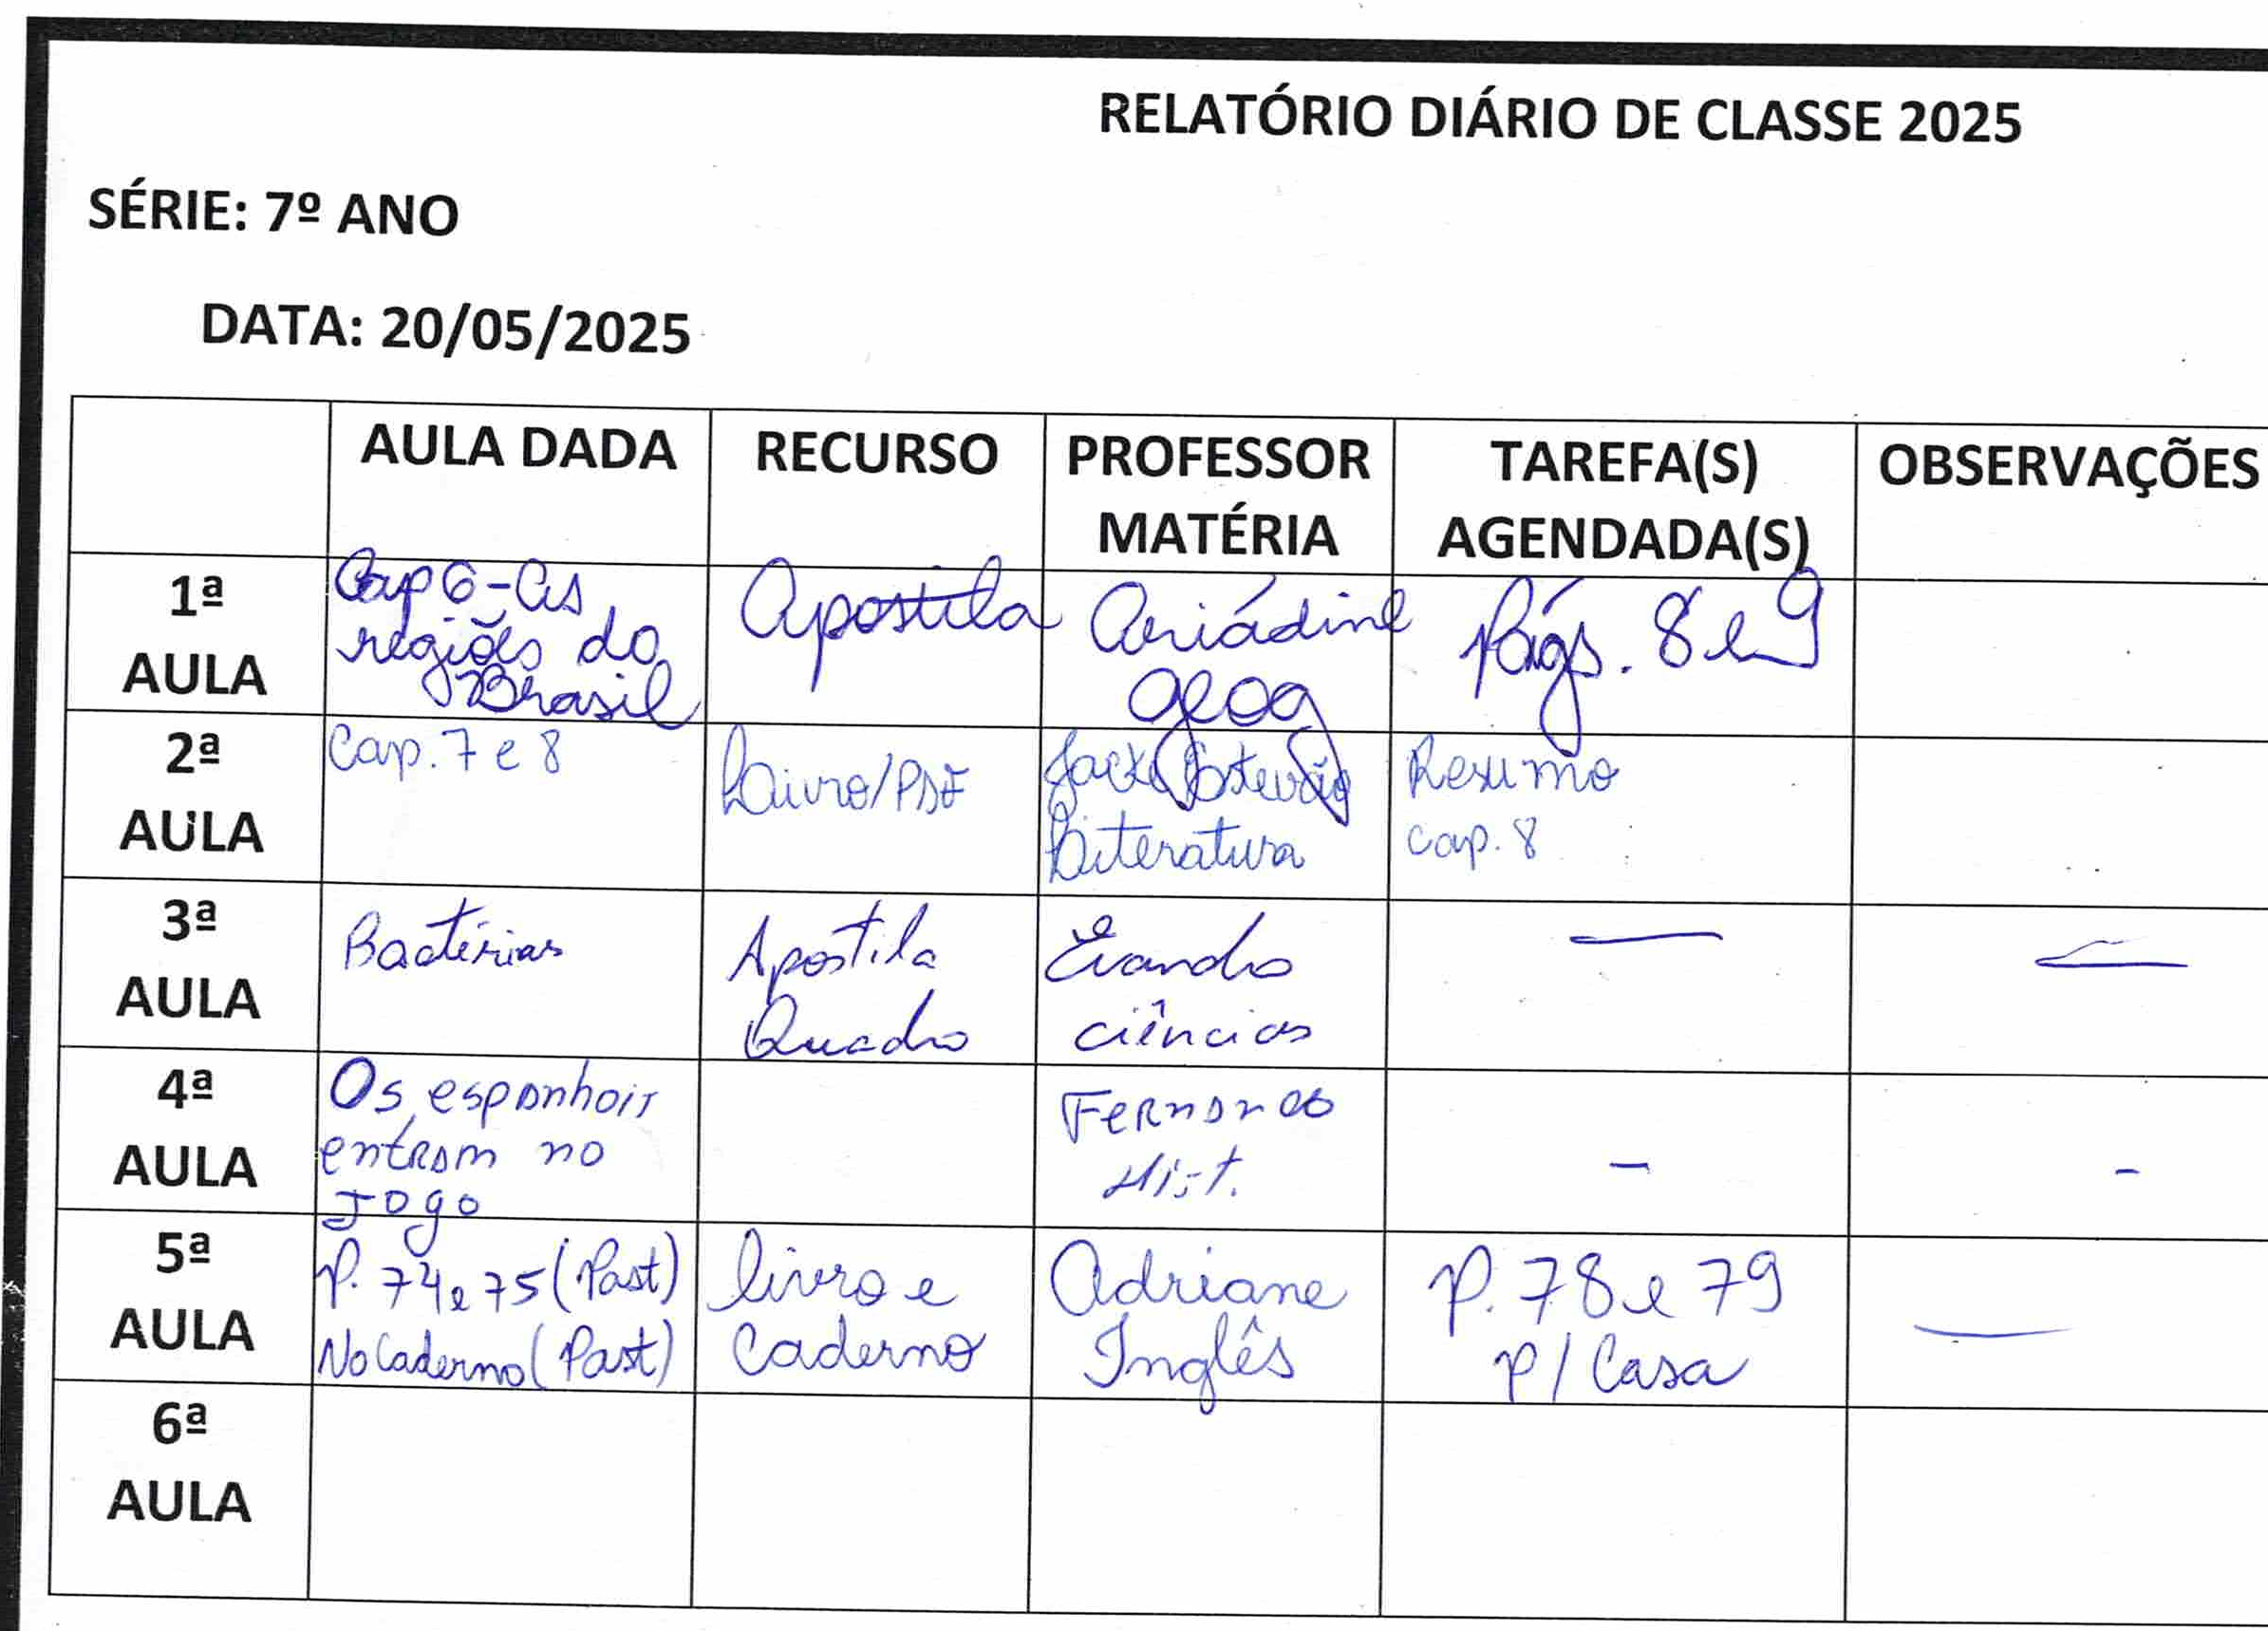 RELATÓRIO DIÁRIO DE CLASSE 2025
SÉRIE: 7º ANO
DATA: 20/05/2025
AULA DADA RECURSO PROFESSOR MATÉRIA TAREFA(S) AGENDADA(S) OBSERVAÇÕES
1ª AULA
Cap 6 - As
regiões do
Brasil
Apostila
Ariádine
geog
Págs. 8 e 9
2ª AULA
Cap. 7 e 8
Livro/PDF
Jack Estevão
Literatura
Resumo
cap. 8
3ª AULA
Bactérias
Apostila
Quadro
Evandro
ciências
—
—
4ª AULA
Os espanhois
entram no
Jogo
Fernando
Hist.
–
-
5ª AULA
P. 74 e 75 (Past)
No Caderno (Past)
livro e
Caderno
Adriane
Inglês
P. 78 e 79
p/ Casa
—
6ª AULA